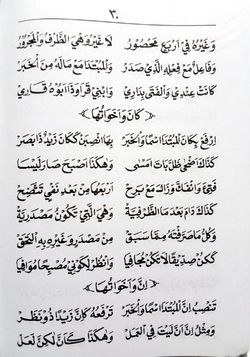 ٣٠
وَغَيْرُهُ فِي أَرْبَعٍ مَحْصُورُ لَا غَيْرُ وَهْيَ الظَّرْفُ وَالْمَجْرُورُ
وَفَاعِلٌ مَعْ فِعْلِهِ الَّذِي صَدَرْ وَالْمُبْتَدَا مَعْ مَالَهُ مِنَ الْخَبَرْ
كَأَنْتَ عِنْدِي وَالْفَتَى بِدَارِي وَابْنِي قَرَا وَذَا أَبُوهُ قَارِي
﴿ كَانَ وَأَخَوَاتُهَا ﴾
اِرْفَعْ بِكَانَ الْمُبْتَدَا اسْمًا وَالْخَبَرْ بِهَا انْصِبَنْ كَكَانَ زَيْدٌ ذَا بَصَرْ
كَذَاكَ أَضْحَى ظَلَّ بَاتَ أَمْسَى وَهٰكَذَا أَصْبَحَ صَارَ لَيْسَا
فَتِئَ وَانْفَكَّ وَزَالَ مَعْ بَرِحْ أَرْبَعُهَا مِنْ بَعْدِ نَفْيٍ تَتَّضِحْ
كَذَاكَ دَامَ بَعْدَ مَا الظَّرْفِيَّةْ وَهْيَ الَّتِي تَكُونُ مَصْدَرِيَّةْ
وَكُلُّ مَا صَرَّفْتَهُ مِمَّا سَبَقْ مِنْ مَصْدَرٍ وَغَيْرِهِ بِهِ الْتَحَقْ
كَكُنْ صَدِيقًا لَا تَكُنْ مُجَافِيَا وَانْظُرْ لِكَوْنِي مُصْبِحًا مُوَافِيَا
﴿ إِنَّ وَأَخَوَاتُهَا ﴾
تَنْصِبُ إِنَّ الْمُبْتَدَا اسْمًا وَالْخَبَرْ تَرْفَعُهُ كَإِنَّ زَيْدًا ذُو نَظَرْ
وَمِثْلُ إِنَّ أَنَّ لَيْتَ فِي الْعَمَلْ وَهٰكَذَا كَأَنَّ لٰكِنَّ لَعَلْ